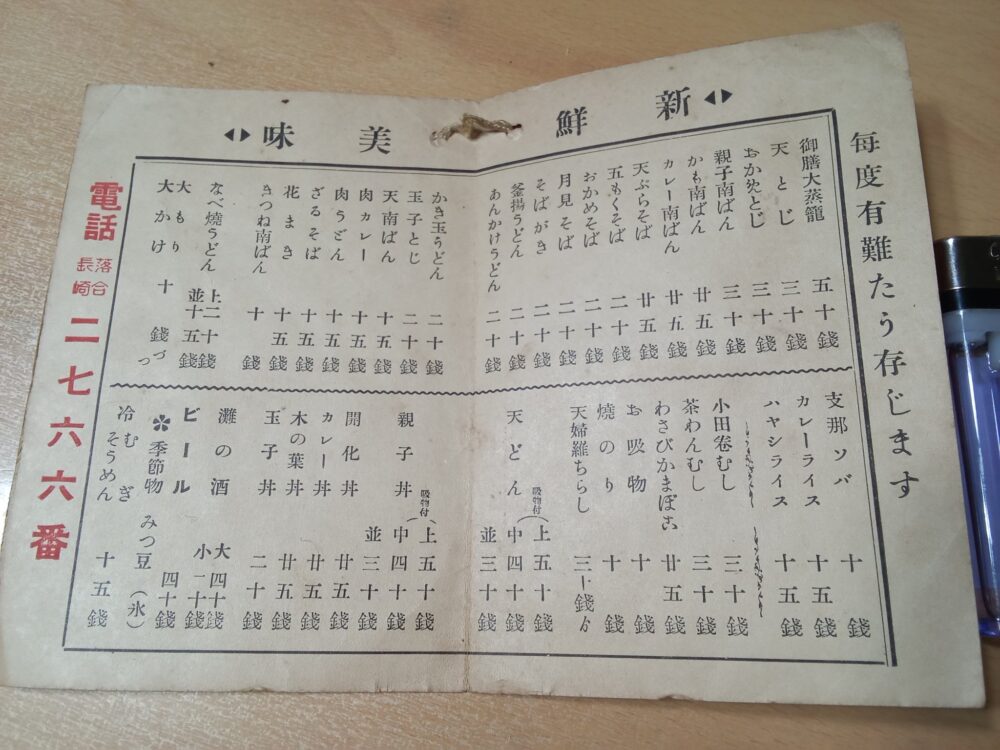 新鮮美味
毎度有難たう存じます
御膳大蒸籠 五十錢
天とじ 三十錢
おかめとじ 三十錢
親子南ばん 三十錢
かも南ばん 廿五錢
カレー南ばん 廿五錢
天ぷらそば 廿五錢
五もくそば 二十錢
おかめそば 二十錢
月見そば 二十錢
そばがき 二十錢
釜揚うどん 二十錢
あんかけうどん 二十錢
かき玉うどん 二十錢
玉子とじ 二十錢
天南ばん 十五錢
肉カレー 十五錢
肉うどん 十五錢
ざるそば 十五錢
花まき 十五錢
きつね南ばん 十錢
なべ焼うどん 上二十錢
並十五錢
大もり
大かけ 十錢づつ
支那ソバ 十錢
カレーライス 十五錢
ハヤシライス 十五錢
小田巻むし 三十錢
茶わんむし 三十錢
わさびかまぼこ 廿五錢
お吸物 十錢
焼のり 十錢
天婦羅ちらし 三十錢
天どん 吸物付 上五十錢
中四十錢
並三十錢
親子丼 吸物付 上五十錢
中四十錢
並三十錢
開化丼 廿五錢
カレー丼 廿五錢
木の葉丼 廿五錢
玉子丼 二十錢
灘の酒 大四十錢
小二十錢
ビール 四十錢
季節物 みつ豆(氷)
冷むぎ
そうめん 十五錢
電話 落合長崎 二七六六番